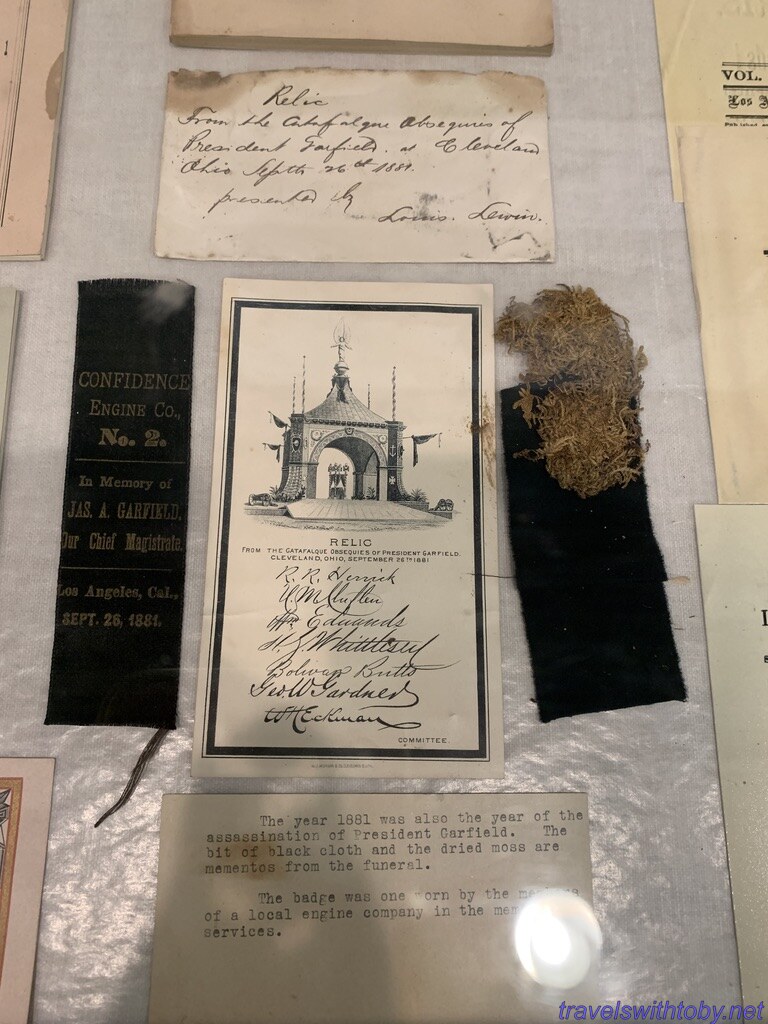 VOL.
Relic
From the Catafalque Obsequies of
President Garfield. at Cleveland
Ohio Septh 26th 1881.
presented by
Louis. Lewin.
CONFIDENCE
ENGINE CO.,
No. 2.
In Memory of
JAS. A. GARFIELD,
Our Chief Magistrate.
Los Angeles, Cal.,
SEPT. 26, 1881.
RELIC
FROM THE CATAFALQUE OBSEQUIES OF PRESIDENT GARFIELD.
CLEVELAND, OHIO, SEPTEMBER 26TH 1881
R. R. Herrick
Wm Edwards
H. S. Whittlesey
Bolivar Butts
Geo. W. Gardner
W H Eckman
COMMITTEE.
The year 1881 was also the year of the
assassination of President Garfield. The
bit of black cloth and the dried moss are
mementos from the funeral.
The badge was one worn by the
of a local engine company in the
services.
travelswithtoby.net